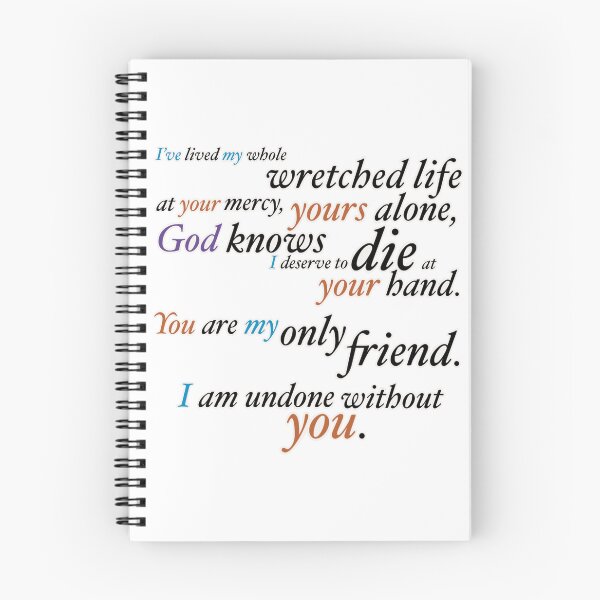 I've lived my whole
wretched life
at your mercy, yours alone,
God knows
I deserve to die at
your hand.
You are my only
friend.
I am undone without
you.